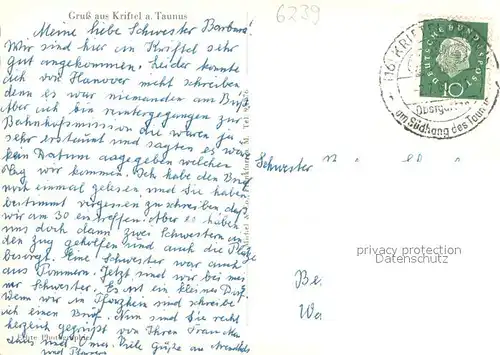 Gruß aus Kriftel a. Taunus
6239
Meine liebe Schwester Barbara!
Wir sind hier in Kriftel sehr
gut angekommen. Leider konnte
ich von Hanover nicht schreiben
denn es war niemanden am Bus
Aber ich bin runtergegangen zur
Bahnhofsmission die waren ja
sehr erstaunt und sagten es war
kein Datum angegeben welchen
Zug wir kommen. Ich habe den Brief
noch einmal gelesen und Sie haben
bestimmt vergessen zu schreiben daß
wir am 30 eintreffen. Aber so haben
uns doch dann zwei Schwestern in
den Zug geholfen und auch die Plätze
besorgt. Eine Schwester war auch
aus Pommern. Jetzt sind wir bei
meiner Schwester. Es ist ein kleines Dorf.
Wenn wir in Pforzheim sind schreibe
ich einen Brief. Nun sind Sie recht
herzlich gegrüßt von Ihren Frau
und Oma. Viele Grüße an
und
Echte Photographie
(16) KRIFTEL
Obstgarten
am Südhang des Taunus
DEUTSCHE BUNDESPOST
10
Schwester
privacy protection
Datenschutz
Be.
Wa